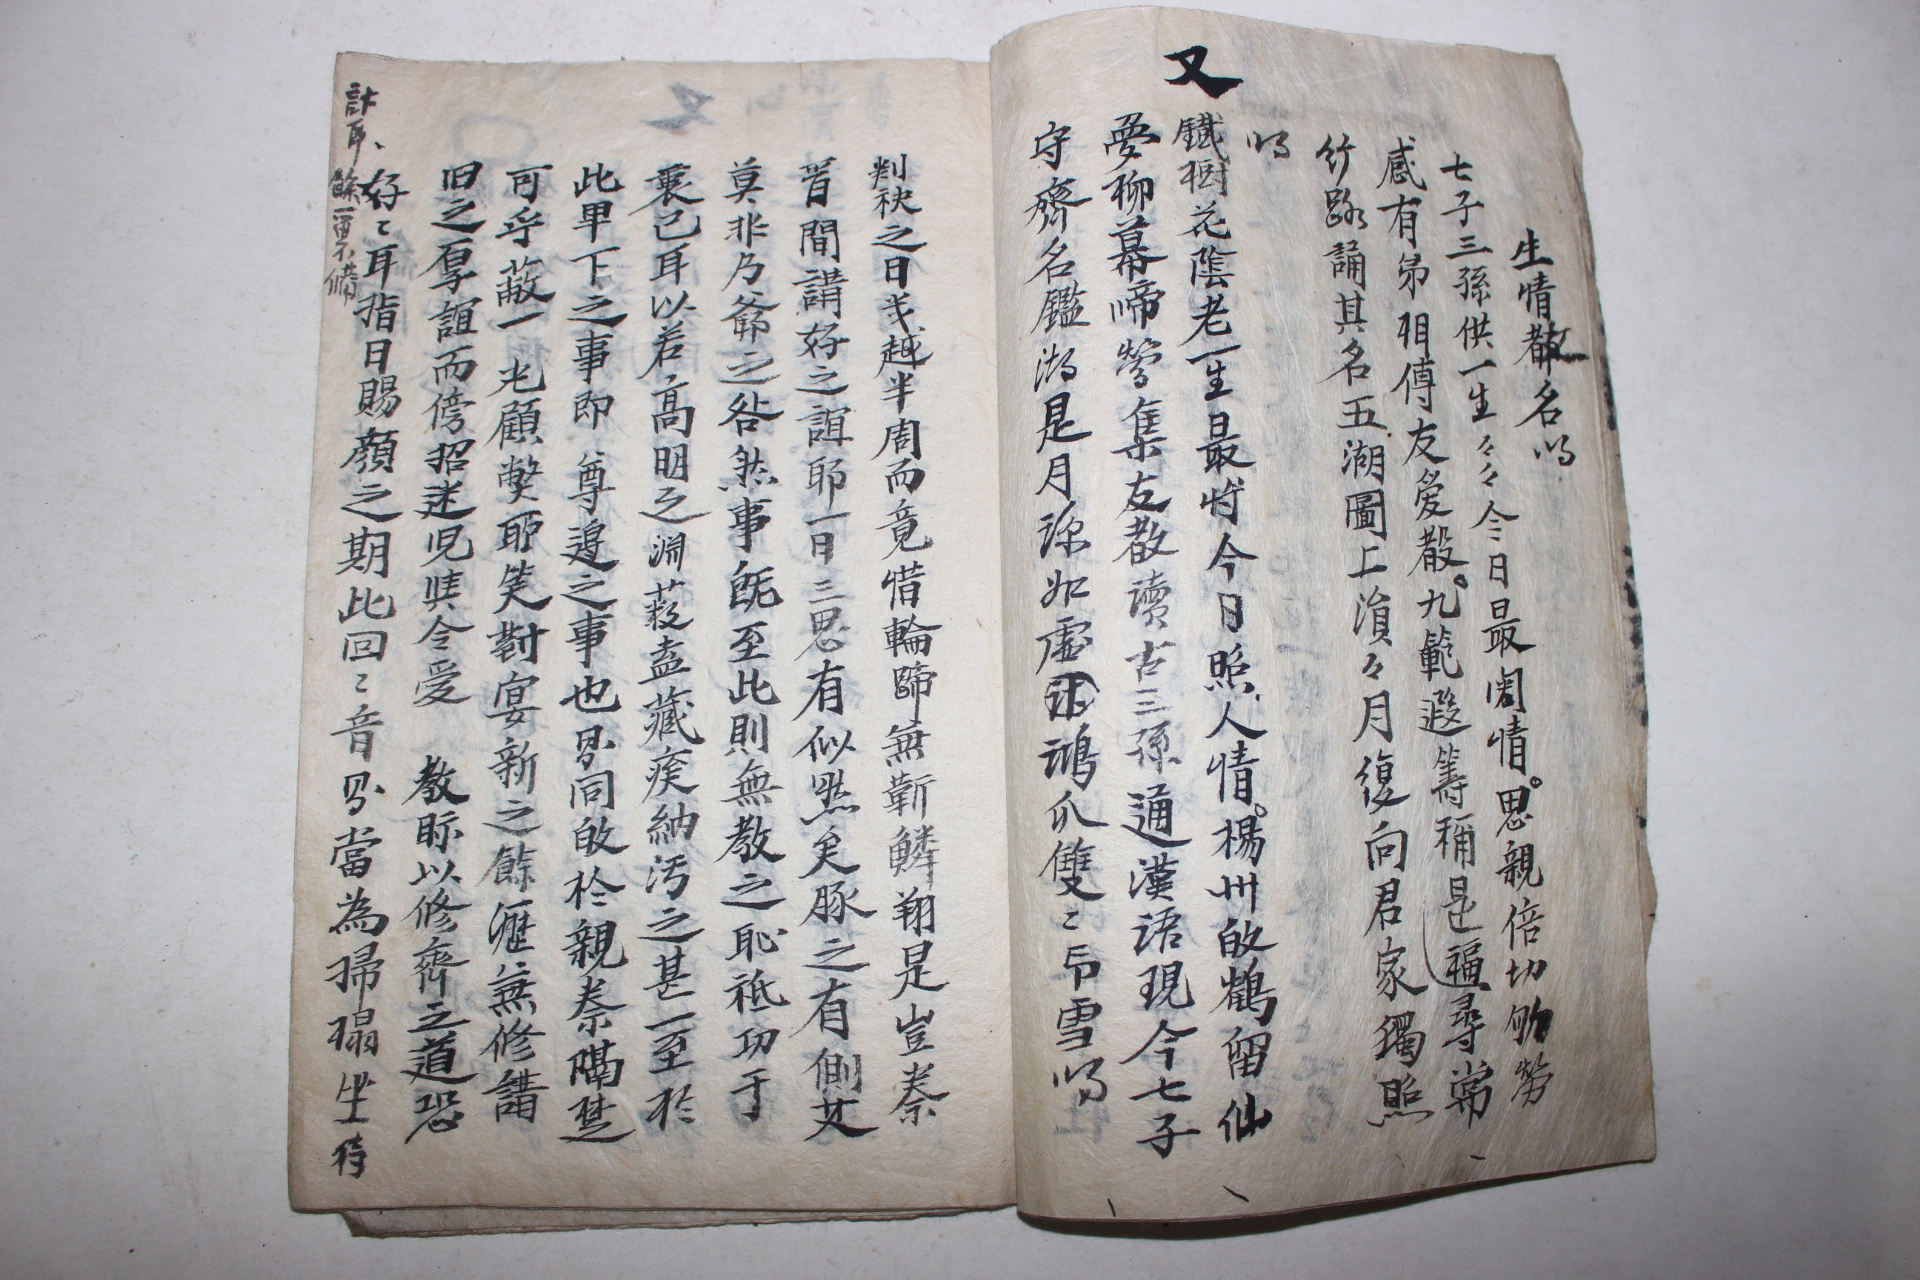 生情散名以
七子三孫供一生々々今日最閣情思親倍切劬勞
感有弟相傳友愛散九範遐籌稱是福尋常
竹路誦其名五湖圖上湏々月復向君家獨照
以
又
鐵樹花陰老一生最将今月照人情楊州的鶴留仙
夢柳幕啼鶯集友散讀古三孫通漢語現今七子
守齋名鑑湖是月涼如虛鴻爪雙〻印雪以
判袂之日戈越半周而竟惜輪蹄無蘄鱗翔是豈秦
晋間講好之誼耶一日三思有似然矣豚之有側艾
莫非乃爺之咎然事旣至此則無教之恥祗切于
衷已耳以若高明之淵藪盍藏疾納汚之甚一至於
此甲下之事即 尊邊之事也 同的於親秦隔楚
可乎蔽一光顧弊耶笑對宴新之餘瀝無修講
旧之厚誼而倍招迷児婿令爱 教眎以修齊之道恐
好〻耳指日賜顏之期此回〻音 當為掃榻坐待
計耳
餘留不備